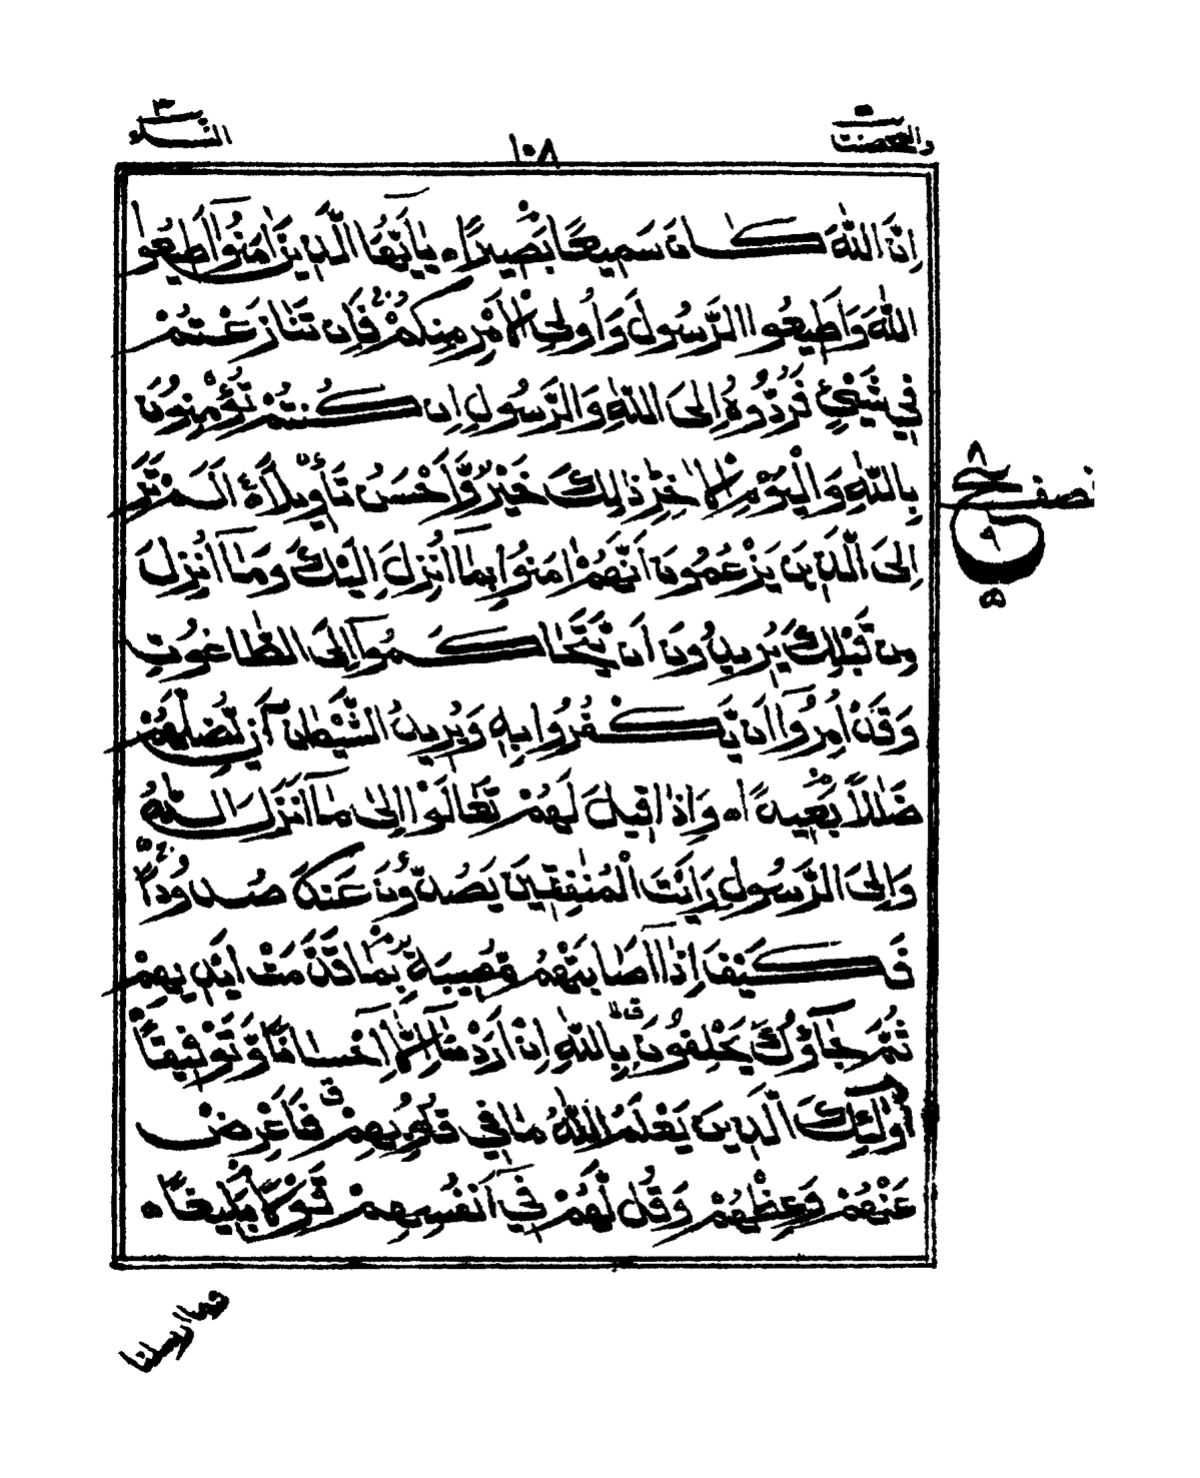 والمحصنت ٥
١٠٨
النساء ٤
اِنَّ اللّٰهَ كَانَ سَمِيْعًا بَصِيْرًا ٥ يٰٓاَيُّهَا الَّذِيْنَ اٰمَنُوْٓا اَطِيْعُوا
اللّٰهَ وَاَطِيْعُوا الرَّسُوْلَ وَاُولِى الْاَمْرِ مِنْكُمْ ۚ فَاِنْ تَنَازَعْتُمْ
فِيْ شَيْءٍ فَرُدُّوْهُ اِلَى اللّٰهِ وَالرَّسُوْلِ اِنْ كُنْتُمْ تُؤْمِنُوْنَ
بِاللّٰهِ وَالْيَوْمِ الْاٰخِرِ ذٰلِكَ خَيْرٌ وَّاَحْسَنُ تَاْوِيْلًا ٥ اَلَمْ تَرَ
اِلَى الَّذِيْنَ يَزْعُمُوْنَ اَنَّهُمْ اٰمَنُوْا بِمَآ اُنْزِلَ اِلَيْكَ وَمَآ اُنْزِلَ
مِنْ قَبْلِكَ يُرِيْدُوْنَ اَنْ يَّتَحَاكَمُوْٓا اِلَى الطَّاغُوْتِ
وَقَدْ اُمِرُوْٓا اَنْ يَّكْفُرُوْا بِهٖ وَيُرِيْدُ الشَّيْطٰنُ اَنْ يُّضِلَّهُمْ
ضَلٰلًا بَعِيْدًا ٥ وَاِذَا قِيْلَ لَهُمْ تَعَالَوْا اِلٰى مَآ اَنْزَلَ اللّٰهُ
وَاِلَى الرَّسُوْلِ رَاَيْتَ الْمُنٰفِقِيْنَ يَصُدُّوْنَ عَنْكَ صُدُوْدًا ۚ
فَكَيْفَ اِذَآ اَصَابَتْهُمْ مُّصِيْبَةٌ بِمَا قَدَّمَتْ اَيْدِيْهِمْ
ثُمَّ جَآؤُوْكَ يَحْلِفُوْنَ بِاللّٰهِ اِنْ اَرَدْنَآ اِلَّآ اِحْسَانًا وَّتَوْفِيْقًا
اُولٰٓئِكَ الَّذِيْنَ يَعْلَمُ اللّٰهُ مَا فِيْ قُلُوْبِهِمْ ۗ فَاَعْرِضْ
عَنْهُمْ وَعِظْهُمْ وَقُلْ لَّهُمْ فِيْٓ اَنْفُسِهِمْ قَوْلًا بَلِيْغًا ٥
نصف
٨
ع
٩
٥
وما ارسلنا